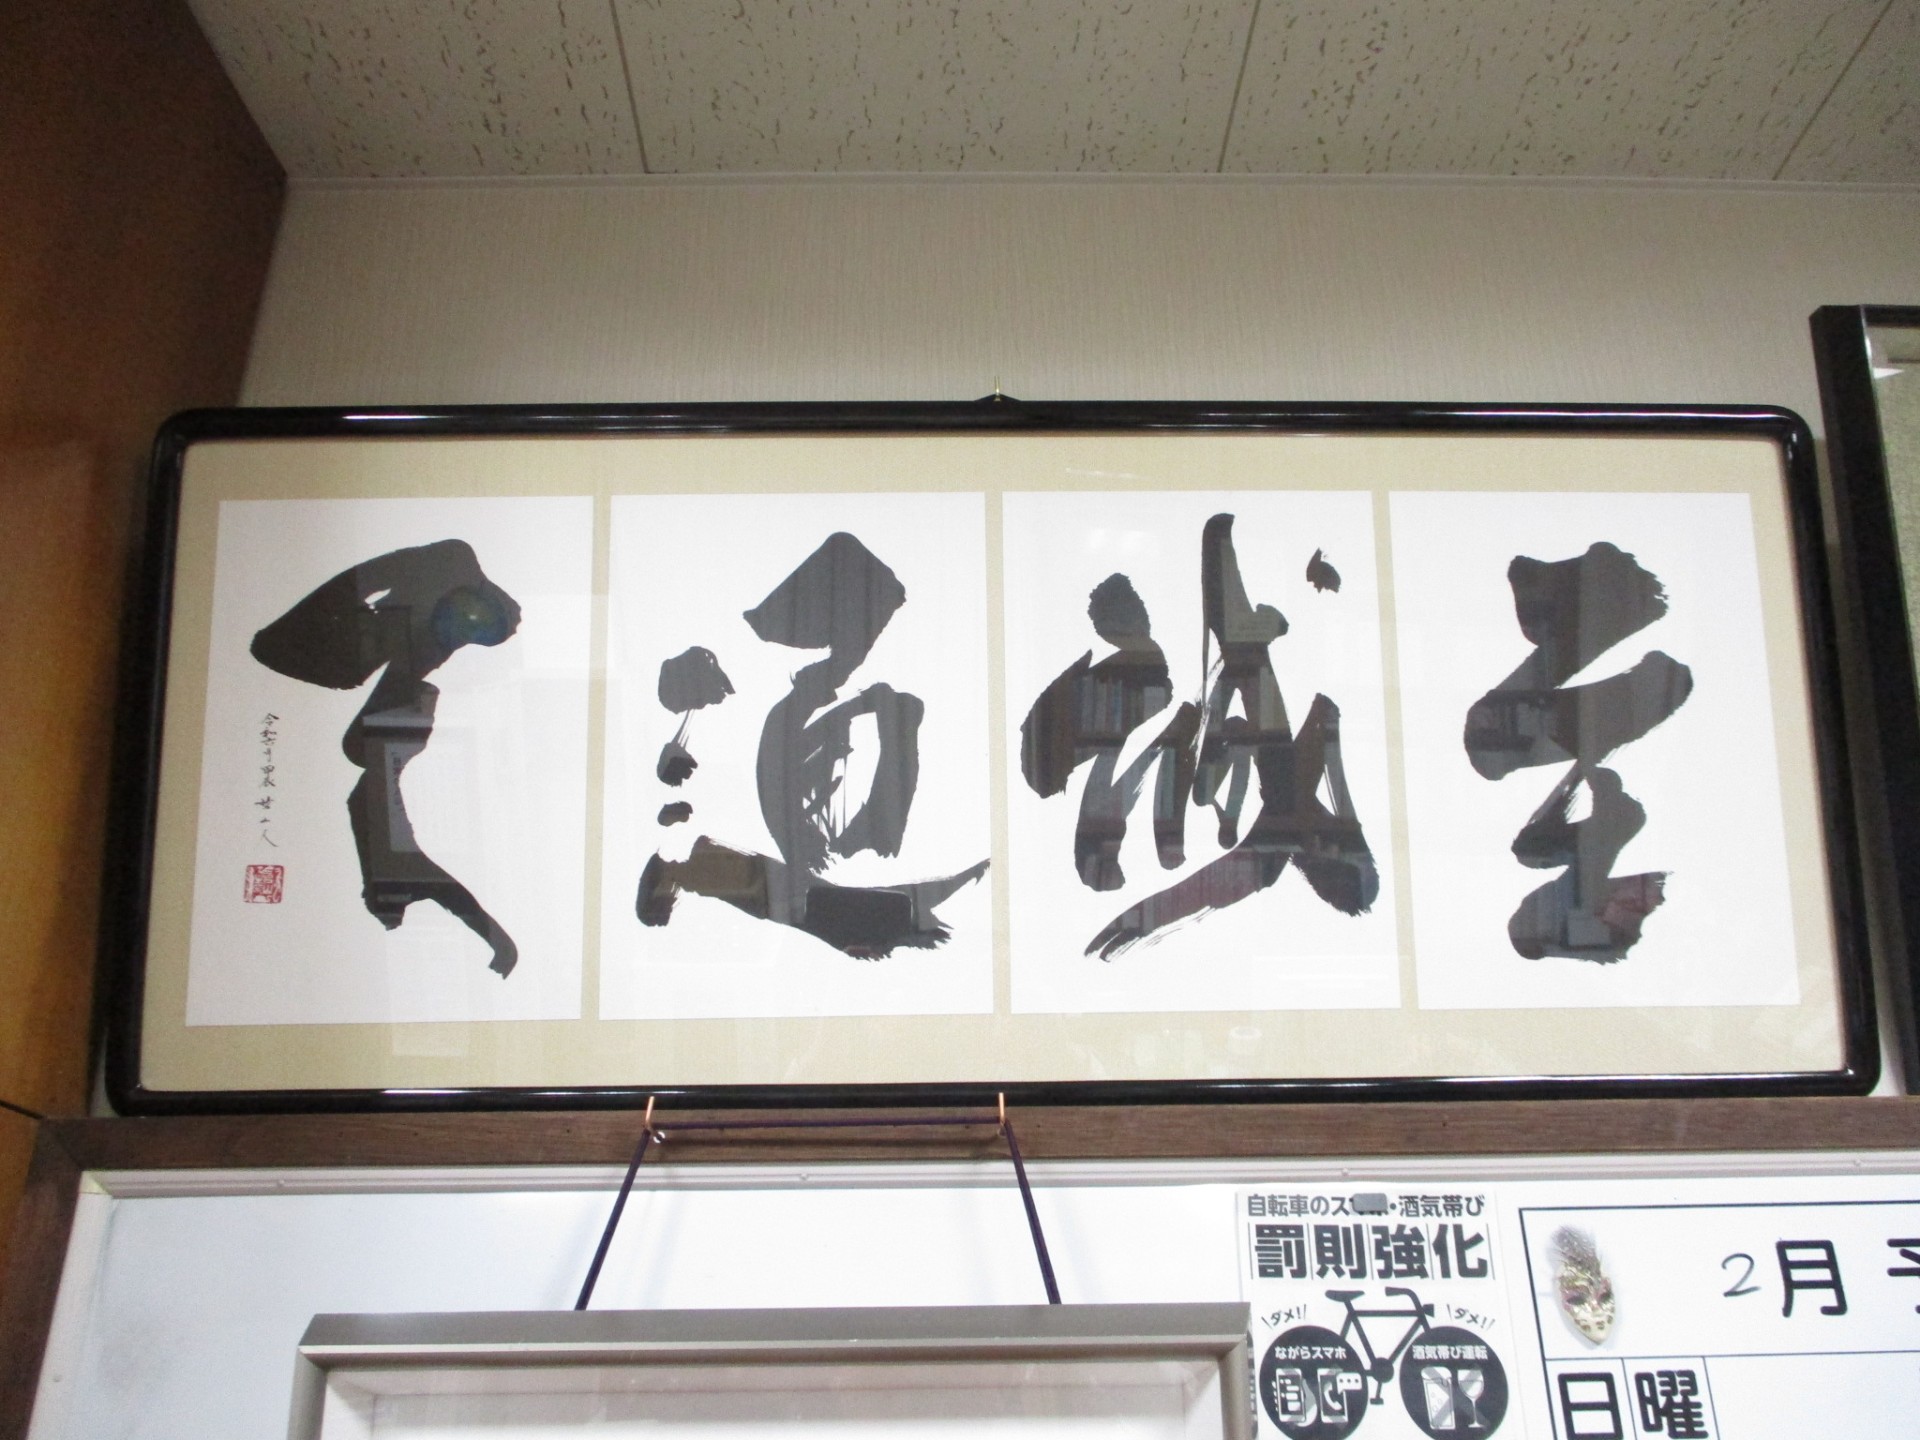 至誠通天
令和六年甲辰
自転車のス・酒気帯び
罰則強化
ダメ!! ダメ!!
ながらスマホ 酒気帯び運転
2月予
日 曜